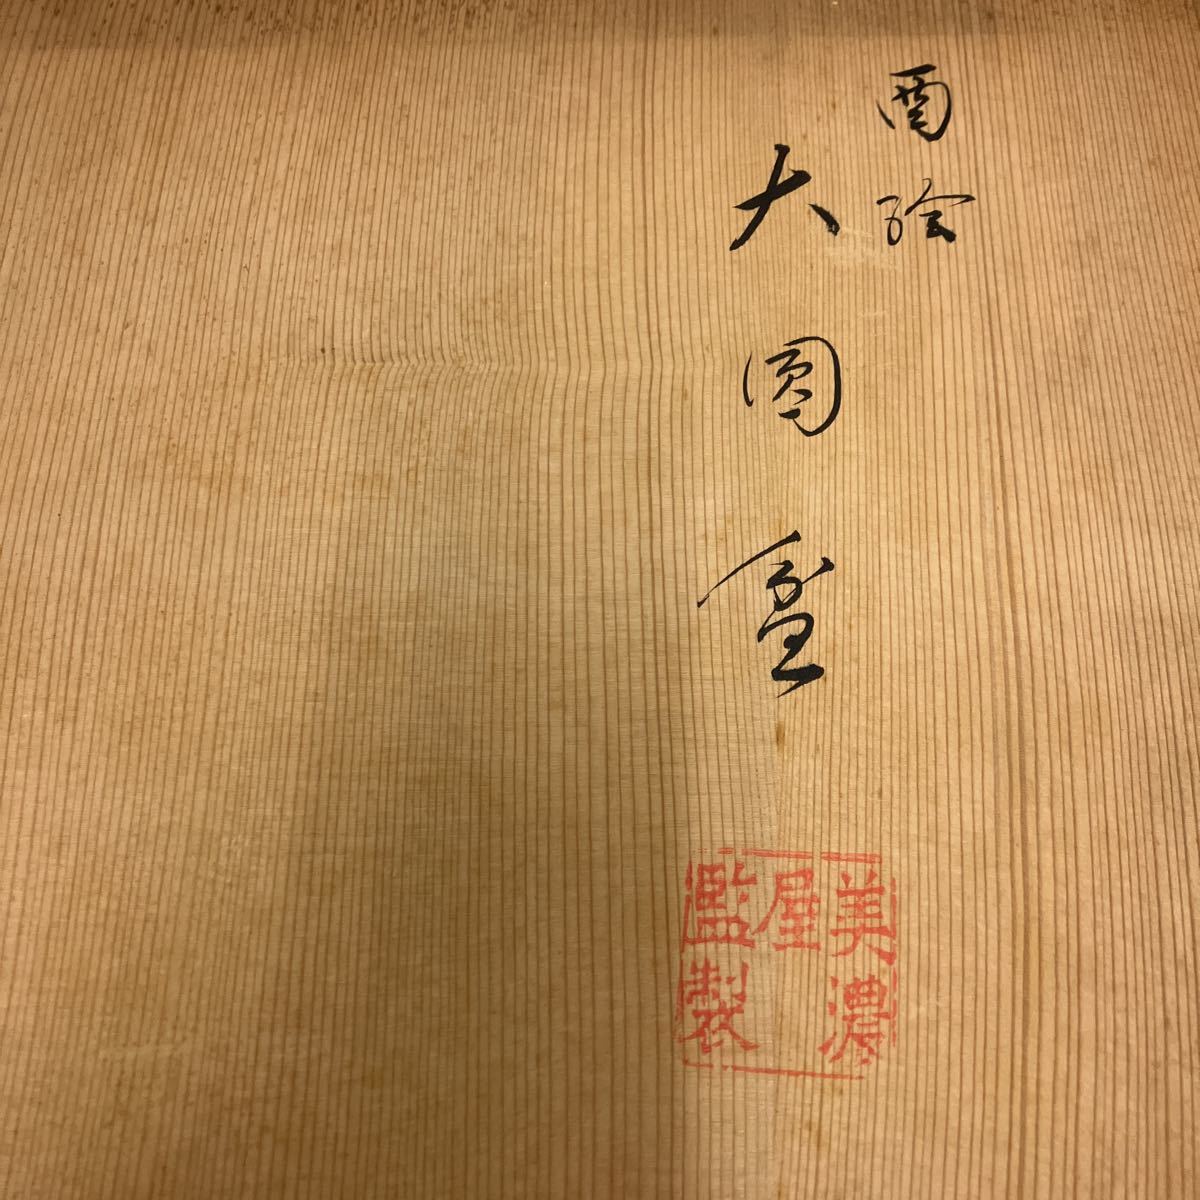 酉絵
大圓盆
美濃
屋
監製